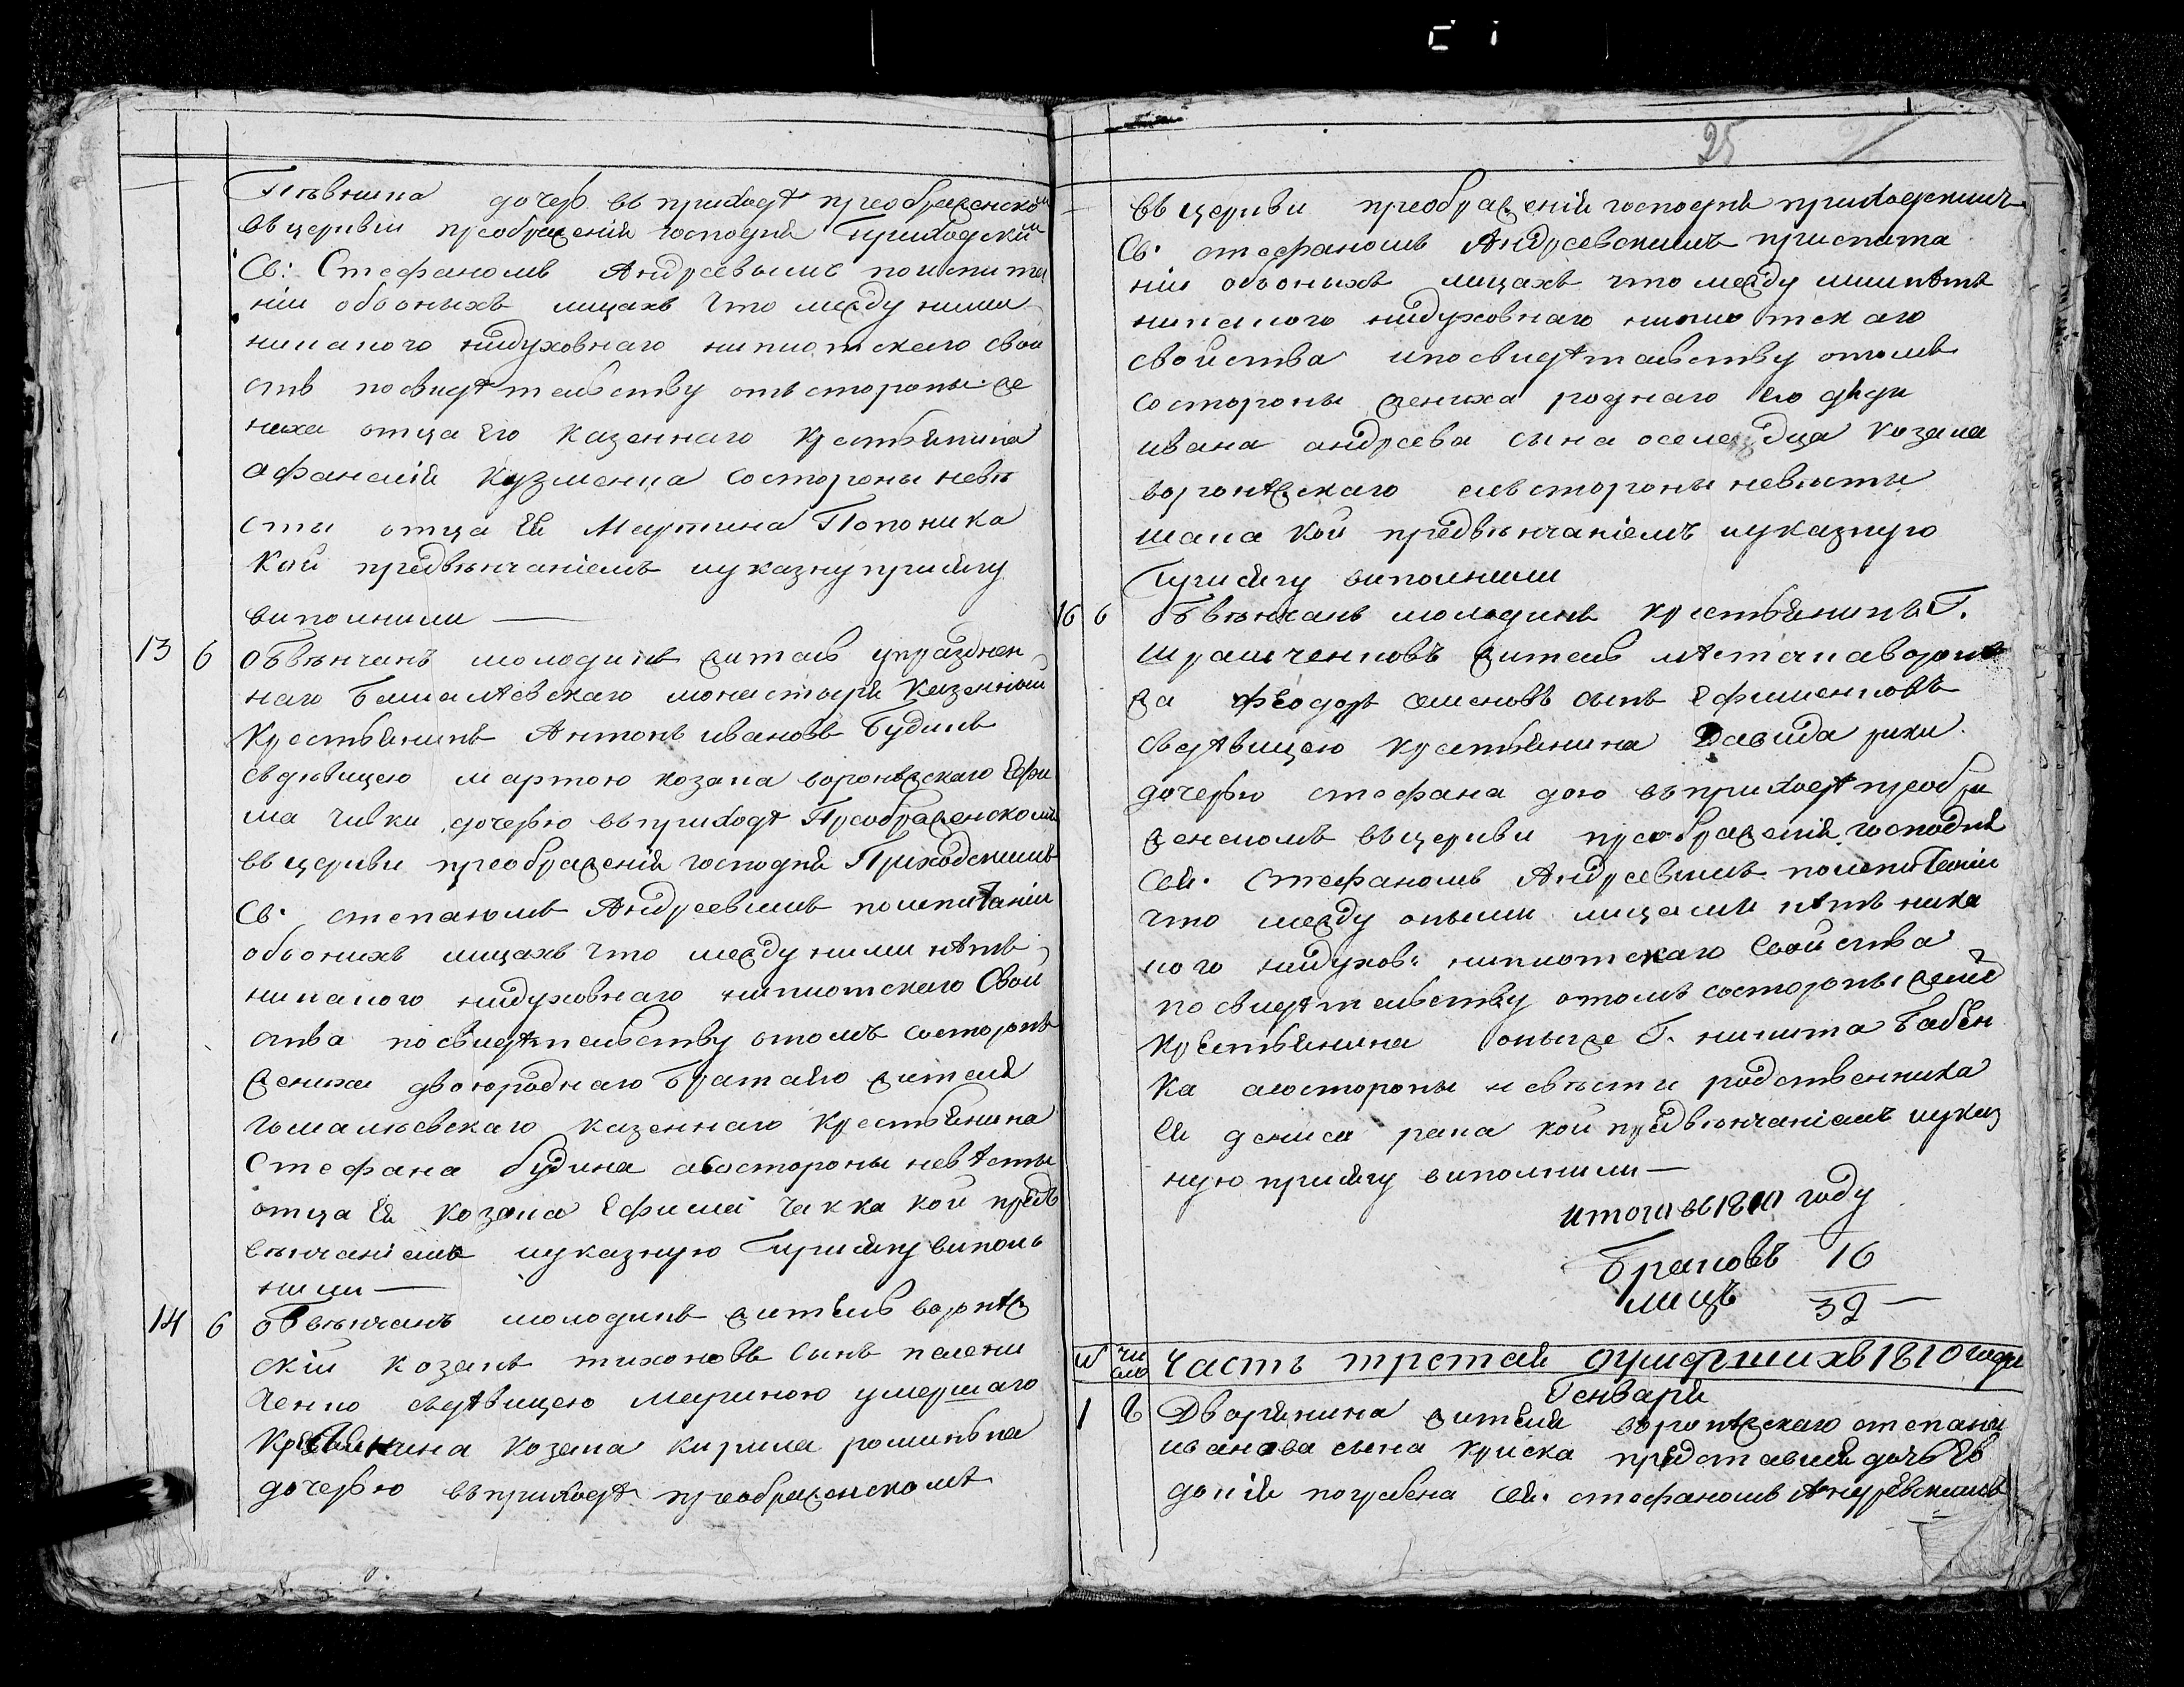 дочер въ приходѣ преображенской
въ церкви преображенія господня Приходски
Св: Стефаномъ Андреевымъ
нiи обооныхъ лицахъ что между ними
никакого нидуховнаго ниплотскаго свой
ств посвидѣтельству отъ стороны же
ниха отца Его казеннаго крестьянина
афанасія кузменка состороны невѣ
сты отца Ея Мартина Попоника
кои предвѣнчаніемъ иуказну присягу
виполнили —
13 6 обвѣнчанъ молодикъ житель упразднен
наго монастыря казенный
крестьянинъ Антонъ ивановъ Будинъ
сьдѣвицею мартою козака воронѣжскаго Ефи
ма дочерю въ приходѣ Преображенскомъ
въ церкви преображенія господня Приходскимъ
Св. степаномъ Андреевимъ поиспитаніи
обоонихъ лицахъ что между ними нѣтъ
никакого нидуховнаго ниплотскаго Свой
ства посвидѣтельству отомъ состоронъ
жениха двоюроднаго Брата его жителя
казеннаго крестьянина
Стефана будина асостороны невѣсты
отца Ея козака Ефима кои предъ
вѣнчаніемъ иуказную Присягу виполь
нили —
14 6 обвѣнчанъ молодикъ житель воронѣж
скій козакъ тихоновъ сынъ
ченко сьдѣвицею Мариною умершаго
козака кирила
дочерью въ приходѣ преображенскомъ
25
въ церкви преображенія господня приходскимъ
Св. стефаномъ Андреевскимъ приспита
ніи обооныхъ лицахъ что между ими нѣтъ
никакого нидуховнаго ниплотскаго
свойства ипосвидѣтельству отомъ
состороны жениха роднаго его дяди
ивана андреева сына козака
воронѣжскаго состороны невѣсты
кои предвѣнчаніемъ иуказную
Присягу виполнили
16 6 обвѣнчанъ молодикъ крестьянинъ Г.
житель мѣстечка воронѣ
жа Феодоръ семеновъ сынъ Ефименковъ
сьдѣвицею крестьянина Давида
дочерю стефана дою въ приходѣ преобра
женскомъ въ церкви преображенія господня
Сщ. Стефаномъ Андреевимъ поиспитаніи
что между оными лицами нѣтъ ника
кого нидухов: ниплотскаго Свойства
посвидѣтельству отомъ состороны
крестьянина оныеже Г. никита Бабен
ка асостороны невѣсти родственника
Ея дениса рака кои предвѣнчаніемъ иуказ
ную присягу виполнили —
итого въ 1810 году
Браковъ 16
лицъ 32 —
№ чи сло Часть третая оумершихъ 1810 года
Генваря
1 Дворянина жителя воронѣжскаго степана
иванова сына преставися дочь Ев
докія погребена Сщ. стефаномъ Андреевскимъ